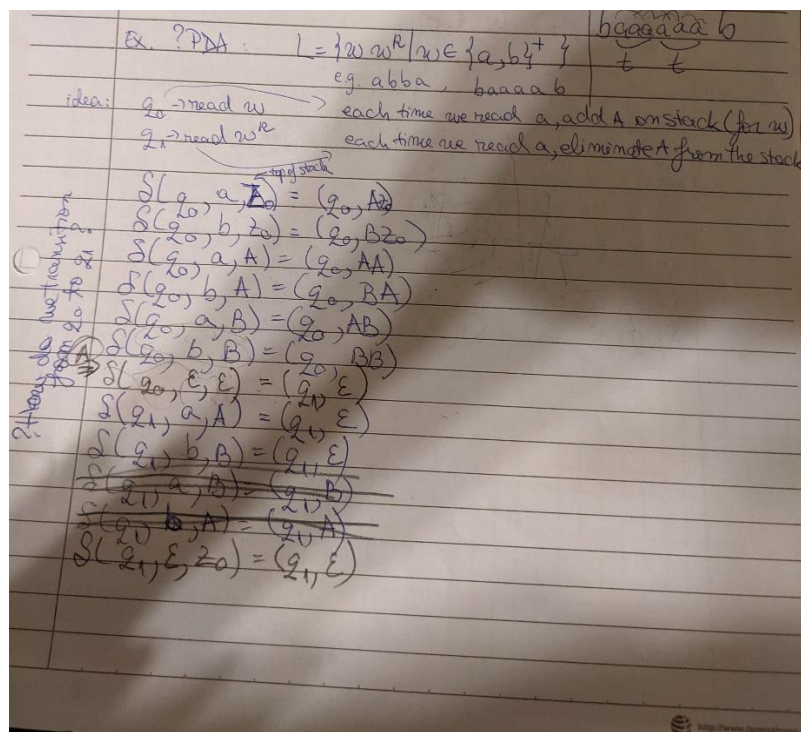 Ex. ?PDA: L = {w w^R | w ∈ {a,b}^+ }
baaaaaab
t t
e.g. abba, baaaab
idea: q0 → read w each time we read a, add A on stack (for w)
q1 → read w^R each time we read a, eliminate A from the stack
top of stack
δ(q0, a, Z0) = (q0, AZ0)
δ(q0, b, Z0) = (q0, BZ0)
δ(q0, a, A) = (q0, AA)
δ(q0, b, A) = (q0, BA)
δ(q0, a, B) = (q0, AB)
δ(q0, b, B) = (q0, BB)
A ⇒ δ(q0, ε, ε) = (q1, ε)
δ(q1, a, A) = (q1, ε)
δ(q1, b, B) = (q1, ε)
δ(q1, a, B) = (q1, B)
δ(q1, b, A) = (q1, A)
δ(q1, ε, Z0) = (q1, ε)
?How do we transition
from q0 to q1?